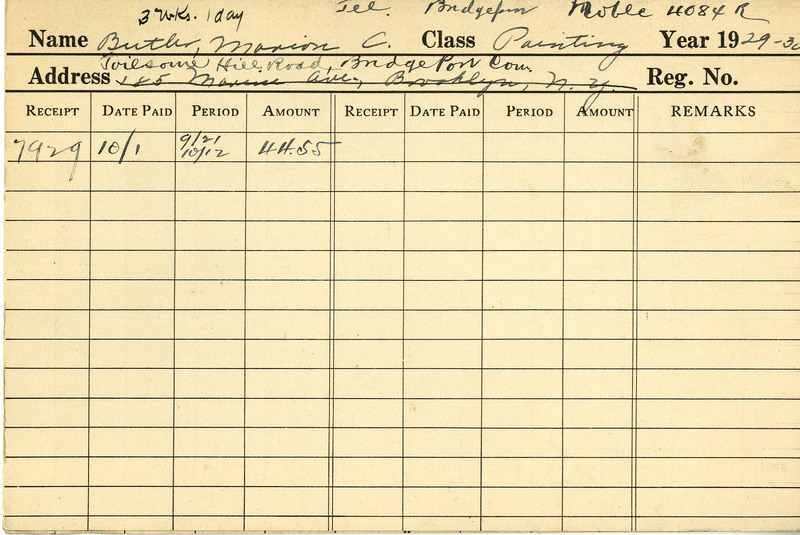 3 Wks. 1 day Tel. Bridgeport Noble 4084 R
Name Butler, Marion C. Class Painting Year 1929-30
Toilsome Hill Road, BridgePort Conn.
Address 185 Marine Ave., Brooklyn, N.Y. Reg. No.
RECEIPT DATE PAID PERIOD AMOUNT RECEIPT DATE PAID PERIOD AMOUNT REMARKS
7929 10/1 9/21 44.55
10/12